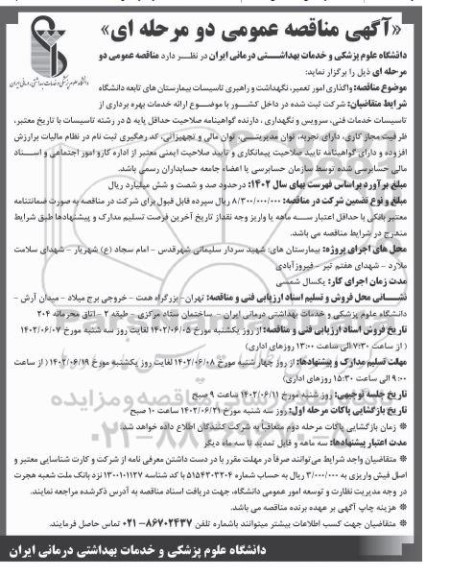 «آگهی مناقصه عمومی دو مرحله ای»
دانشگاه علوم پزشکی و خدمات بهداشتی درمانی ایران در نظر دارد مناقصه عمومی دو
مرحله ای ذیل را برگزار نماید:
موضوع مناقصه: واگذاری امور تعمیر، نگهداشت و راهبری تاسیسات بیمارستان های تابعه دانشگاه
شرایط متقاضیان: شرکت ثبت شده در داخل کشور با موضوع ارائه خدمات بهره برداری از
تاسیسات خدمات فنی، سرویس و نگهداری ، دارنده گواهینامه صلاحیت حداقل پایه ۵ در رشته تاسیسات با تاریخ معتبر،
ظرفیت مجاز کاری، دارای تجربه، توان مدیریتی، توان مالی و تجهیزاتی، کد رهگیری ثبت نام در نظام مالیات برارزش
افزوده و دارای گواهینامه تایید صلاحیت پیمانکاری و تایید صلاحیت ایمنی معتبر از اداره کار و امور اجتماعی و اسناد
مالی حسابرسی شده توسط سازمان حسابرسی یا اعضاء جامعه حسابداران رسمی باشد.
مبلغ برآورد براساس فهرست بهای سال ۱۴۰۲: درحدود صد و شصت و شش میلیارد ریال
مبلغ و نوع تضمین شرکت در مناقصه: ۸/۳۰۰/۰۰۰/۰۰۰ ریال سپرده قابل قبول برای شرکت در مناقصه به صورت ضمانتنامه
معتبر بانکی با حداقل اعتبار سه ماهه یا واریز وجه نقد از تاریخ آخرین فرصت تسلیم مدارک و پیشنهادها طبق شرایط
مندرج در شرایط مناقصه می باشد.
محل های اجرای پروژه: بیمارستان های: شهید سردار سلیمانی شهرقدس - امام سجاد (ع) شهریار - شهدای سلامت
ملارد - شهدای هفتم تیر - فیروزآبادی
مدت زمان اجرای کار: یکسال شمسی
نشانی محل فروش و تسلیم اسناد ارزیابی فنی و مناقصه: تهران- بزرگراه همت - خروجی برج میلاد - میدان آرش -
دانشگاه علوم پزشکی و خدمات بهداشتی درمانی ایران - ساختمان ستاد مرکزی - طبقه ۲ - اتاق محرمانه ۲۰۴
تاریخ فروش اسناد ارزیابی فنی و مناقصه: از روز یکشنبه مورخ ۱۴۰۲/۰۶/۰۵ لغایت روز سه شنبه مورخ ۱۴۰۲/۰۶/۰۷
( از ساعت ۷:۳۰ الی ساعت ۱۳:۰۰ روزهای اداری)
مهلت تسلیم مدارک و پیشنهادها: از روز چهار شنبه مورخ ۱۴۰۲/۰۶/۰۸ لغایت روز یکشنبه مورخ ۱۴۰۲/۰۶/۱۹ ( از ساعت
۹:۰۰ الی ساعت ۱۵:۳۰ روزهای اداری)
تاریخ جلسه توجیهی: روز شنبه مورخ ۱۴۰۲/۰۶/۱۱ ساعت ۹ صبح
تاریخ بازگشایی پاکات مرحله اول: روز سه شنبه مورخ ۱۴۰۲/۰۶/۲۱ ساعت ۱۰ صبح
※ زمان بازگشایی پاکات مرحله دوم متعاقباً به شرکت کنندگان اطلاع داده خواهد شد.
مدت اعتبار پیشنهادها: سه ماهه و قابل تمدید تا سه ماه دیگر
※ متقاضیان واجد شرایط می‌توانند صرفاً در مهلت مقرر با در دست داشتن معرفی نامه از شرکت و کارت شناسایی معتبر و
اصل فیش واریزی به ۳/۰۰۰/۰۰۰ ریال به حساب شماره ۵۱۵۴۳۰۳۲۰۴ با کد شناسه ۱۳۰۰۱۰۱۱۲۷ نزد بانک ملت شعبه هجرت
در وجه مدیریت نظارت و توسعه امور عمومی دانشگاه، جهت دریافت اسناد مناقصه به آدرس ذکرشده مراجعه نمایند.
※ هزینه چاپ آگهی بر عهده برنده مناقصه می باشد.
※ متقاضیان جهت کسب اطلاعات بیشتر میتوانند باشماره تلفن ۸۶۷۰۲۴۳۷-۰۲۱ تماس حاصل فرمایند.
دانشگاه علوم پزشکی و خدمات بهداشتی درمانی ایران